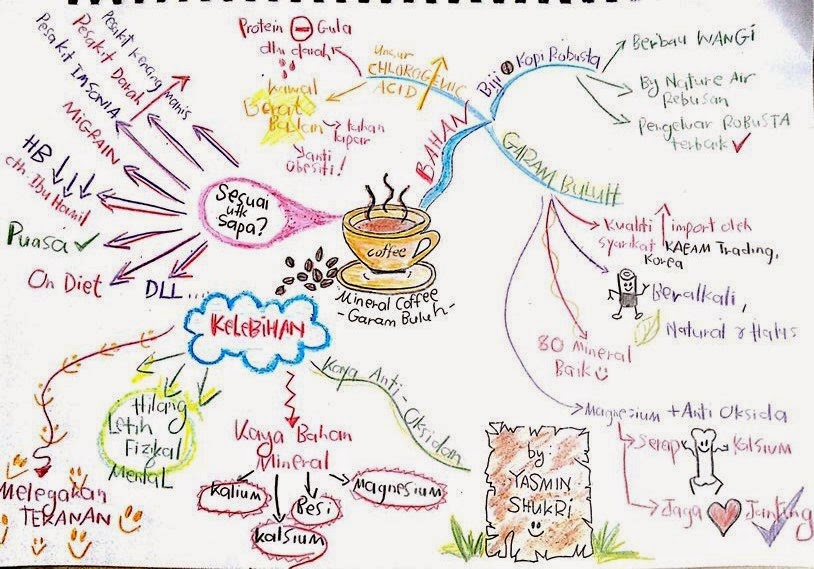 Protein ⊖ Gula
dlm darah
Unsur
CHLOROGENIC
ACID
Kawal
Berat
Badan
tahan
lapar
anti
obesiti!
BAHAN
Biji Kopi Robusta
Berbau WANGI
By Nature Air
Rebusan
Pengeluar ROBUSTA
terbaik ✓
GARAM BULUH
Kualiti
import oleh
syarikat KAEAM Trading,
Korea
Beralkali,
Natural & Halus
80 Mineral
Baik
Magnesium + Anti Oksida
Serap
Kalsium
Jaga
Jantung
Sesuai
utk
sapa?
Pesakit Kencing Manis
Pesakit Darah
Pesakit IMSONIA
MIGRAIN
HB ↓↓↓
cth. Ibu Hamil
Puasa ✓
On Diet
DLL...
coffee
Mineral Coffee
- Garam Buluh -
KELEBIHAN
Melegakan
TEKANAN
Hilang
Letih
Fizikal
Mental
Kaya Bahan
Mineral
Kalium
Kalsium
Besi
Magnesium
Kaya Anti-Oksidan
by:
YASMIN
SHUKRI